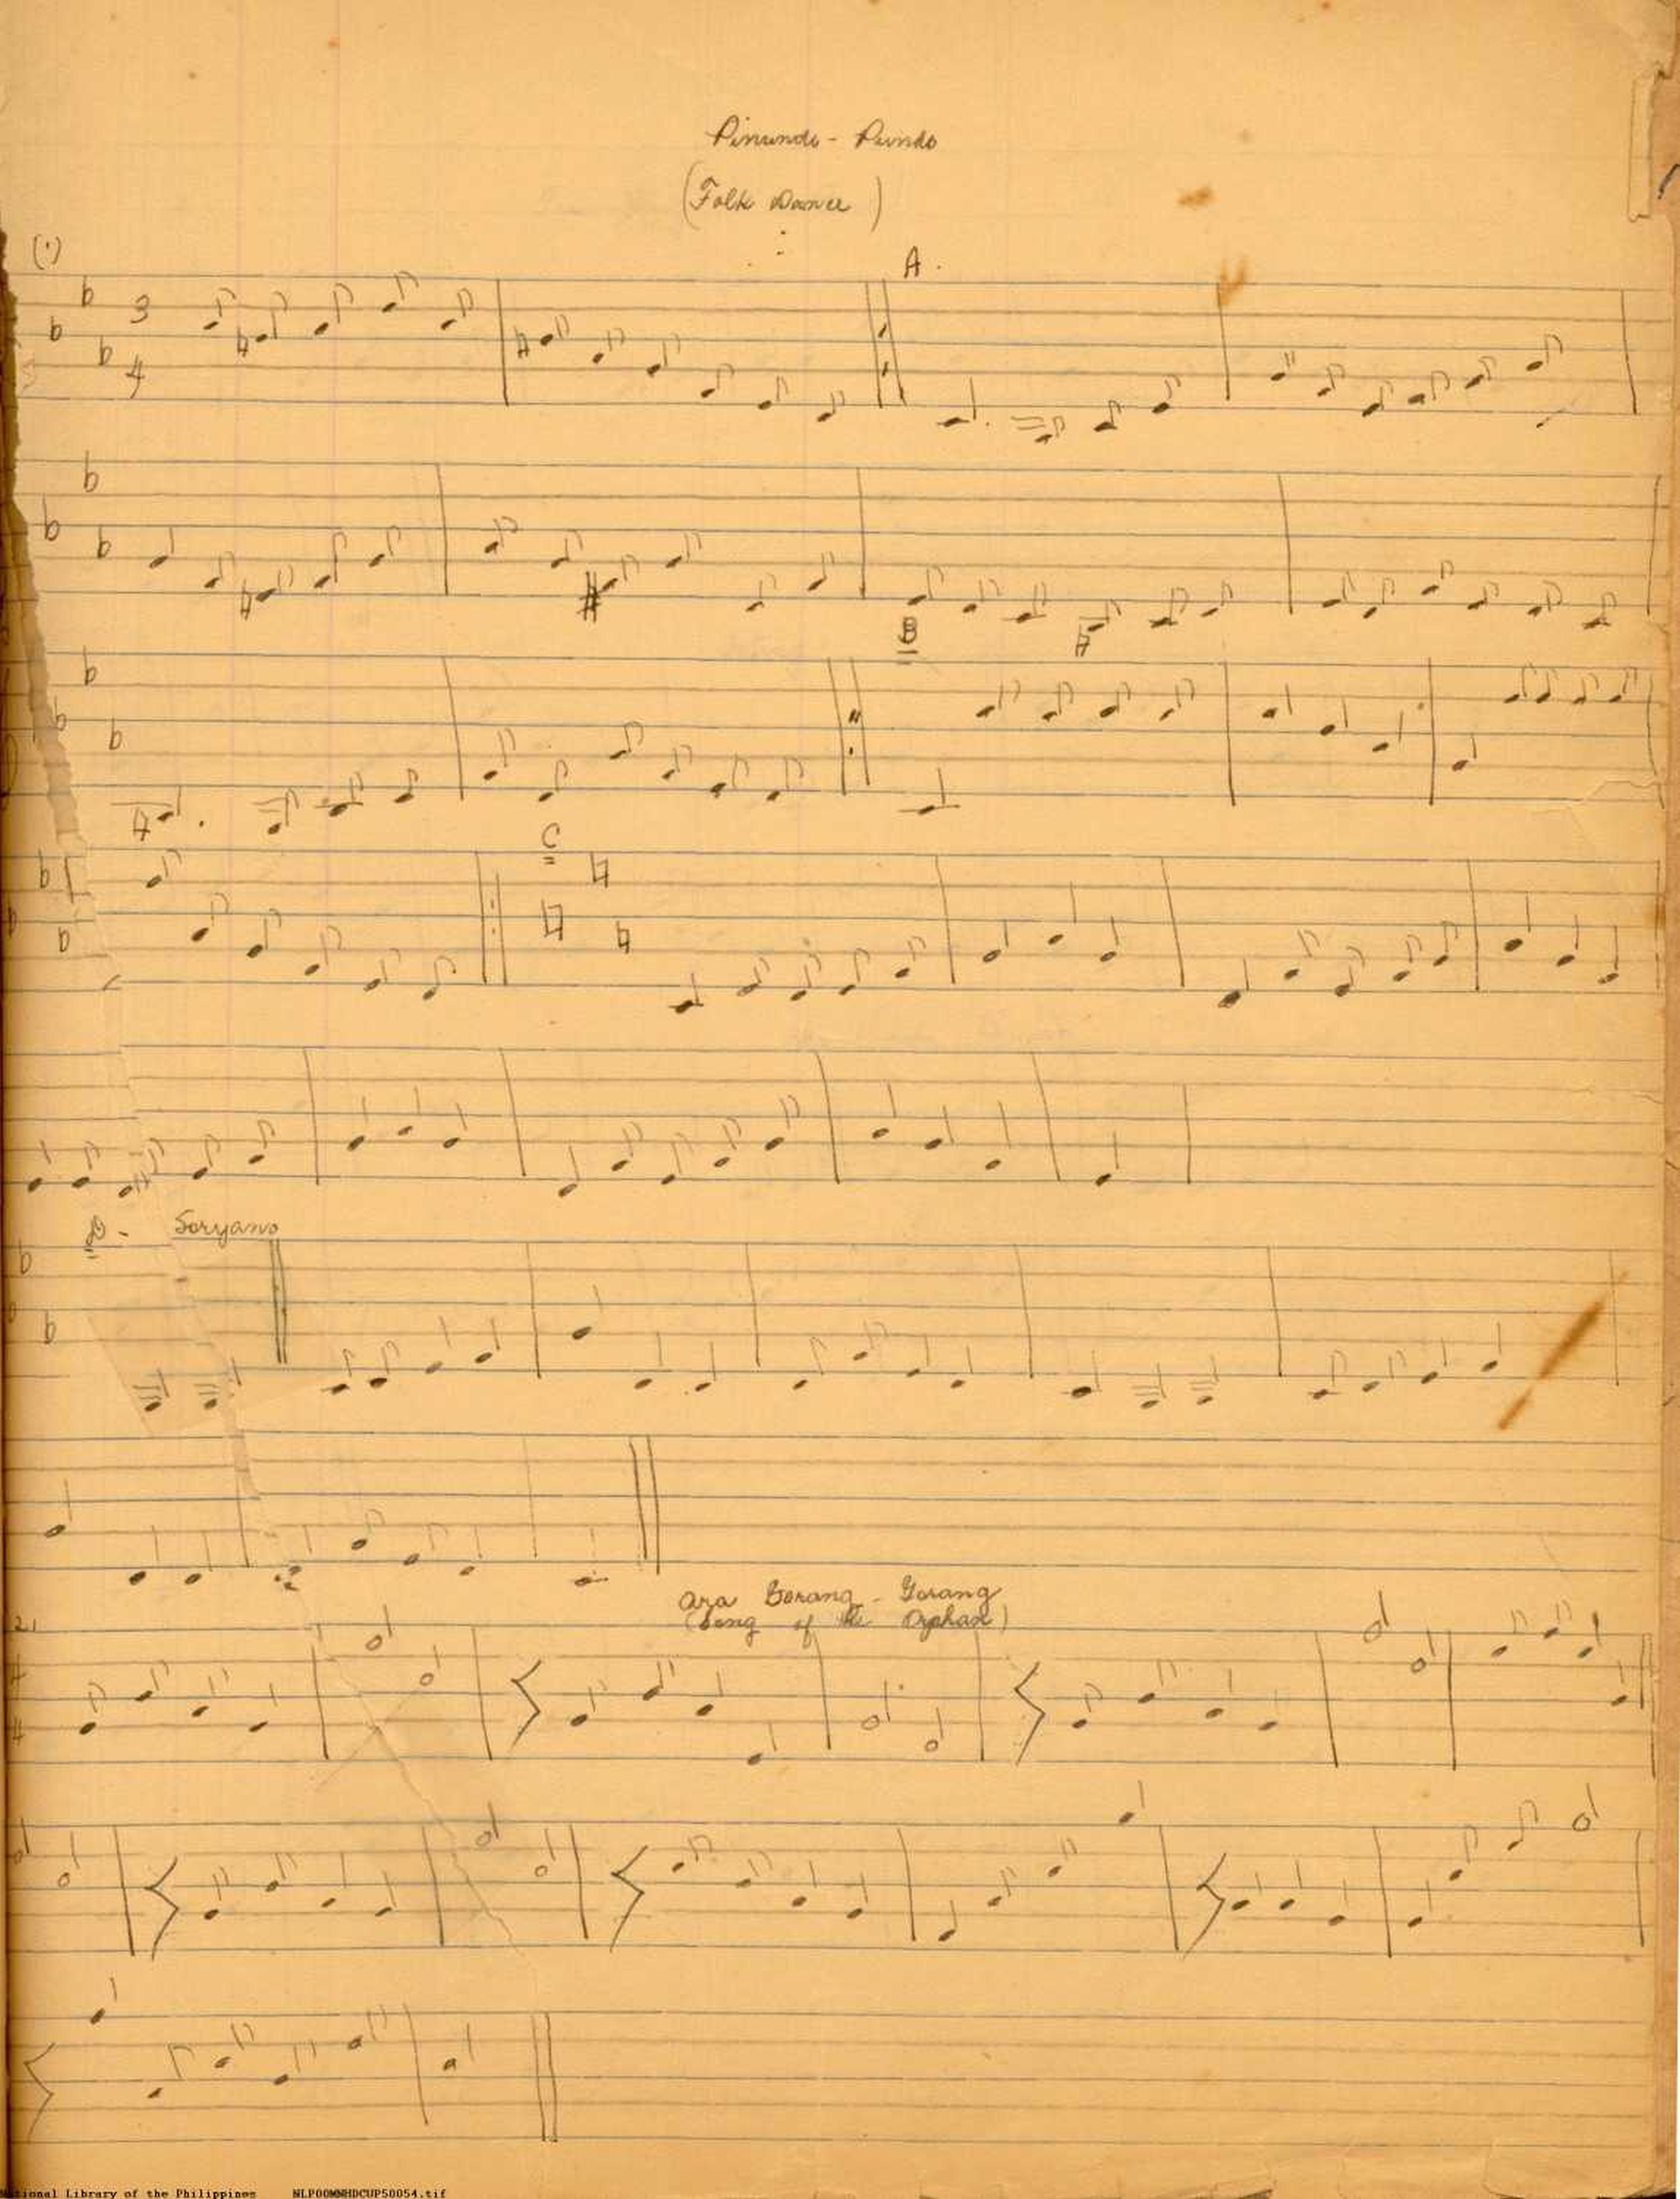 Pinundo - Pundo
(Folk Dance)
(1)
A.
3
4
B
C
D - Soryano
Ara Gorang - Gorang
(Song of the Orphan)
2
4
National Library of the Philippines NLP00MNHDCUP50054.tif